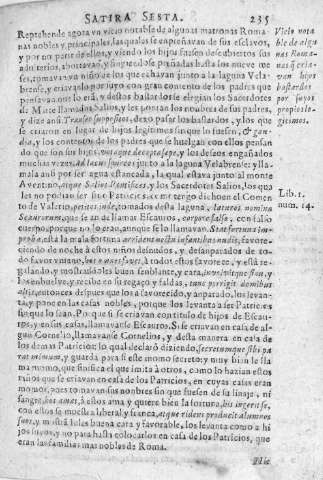 SATIRA SESTA. 235
Reprehende agora vn vicio notable de algunas matronas Roma-
nas nobles y principales, las quales se empreñavan de sus esclavos,
y por no parir de ellos, y viendo los hijos fuessen descubiertos sus
adulterios, abortavan, y fingiendose preñadas hasta los nueve me
ses, tomavan vn niño de los que echavan junto a la laguna Vela-
brense, y criavanlo por suyo con gran contento de los padres que
pensavan que lo era, y destos bastardos elegian los Sacerdotes
de Marte llamados Salios, y les ponian los nombres de sus padres,
y dize ansi. Transeo suppositos, dexo pasar los bastardos, y los que
se criaron en lugar de hijos legitimos sin que lo fuessen, & gau-
dia, y los contentos de los padres que se huelgan con ellos pensan
do que son sus hijos, votaque decepta sæpe, y los deseos engañados
muchas vezes, ad lacus junto a la laguna Velabrense, y lla-
mala ansi por ser agua estancada, la qual estava junto al monte
Aventino, atque Salios Pontifices, y los Sacerdotes Salios, los qua
les no podian ser sino Patricios,
de Valerio, petitos inde, tomados desta laguna, laturos nomina
Scaurorum, que se an de llamar Escauros, corpore falso, con falso
cuerpo, porque no lo eran, aunque se lo llamavan. Stat fortuna im-
proba, està la mala fortuna arridens nudis infantibus, favore-
ciendo de noche à estos niños desnudos, y desamparados de to-
do favor humano, hos a todos estos favorece, y està re-
galando, y mostrandoles buen semblante, y cara, involvitque sinu, y
los enbuelve, y recibe en su regaço y faldas, tunc porrigit domibus
altis, entonces despues que los a favorecido, y amparado, los levan-
ta, y pone en las casas nobles, porque los levanta a ser Patricios
sin que lo sean. Por que si se criavan con titulo de hijos de Escau-
ros, y en sus casas, llamavanse Escauros. Si se criavan en casa de al-
gun Cornelio, llamavanse Cornelios, y desta manera en casa de
los demas Patricios: lo qual declarò diziendo, secretumque sibi pa
rat mimum, y guarda para si este momo secreto: y muy bien le lla
ma momo, que significa el que imita à otros, como lo hazian estos
niños que se criavan en casa de los Patricios, en cuyas casas eran
momos, pues tomavan sus nombres sin que fuesen de su linaje, ni
sangre, hos amat, à estos ama y quiere bien la fortuna, his ingerit se,
con estos se muestra liberal y franca, atque ridens producit alumnos
suos, y mostrandoles buena cara y favorable, los levanta como a hi
jos suyos, y no para hasta colocarlos en casa de los Patricios, que
eran las familias mas nobles de Roma.
Vicio nota
ble de algu
nas Roma-
nas q cria-
van hijos
bastardos
por suyos
propios le-
gitimos.
Lib. 1.
num. 14.